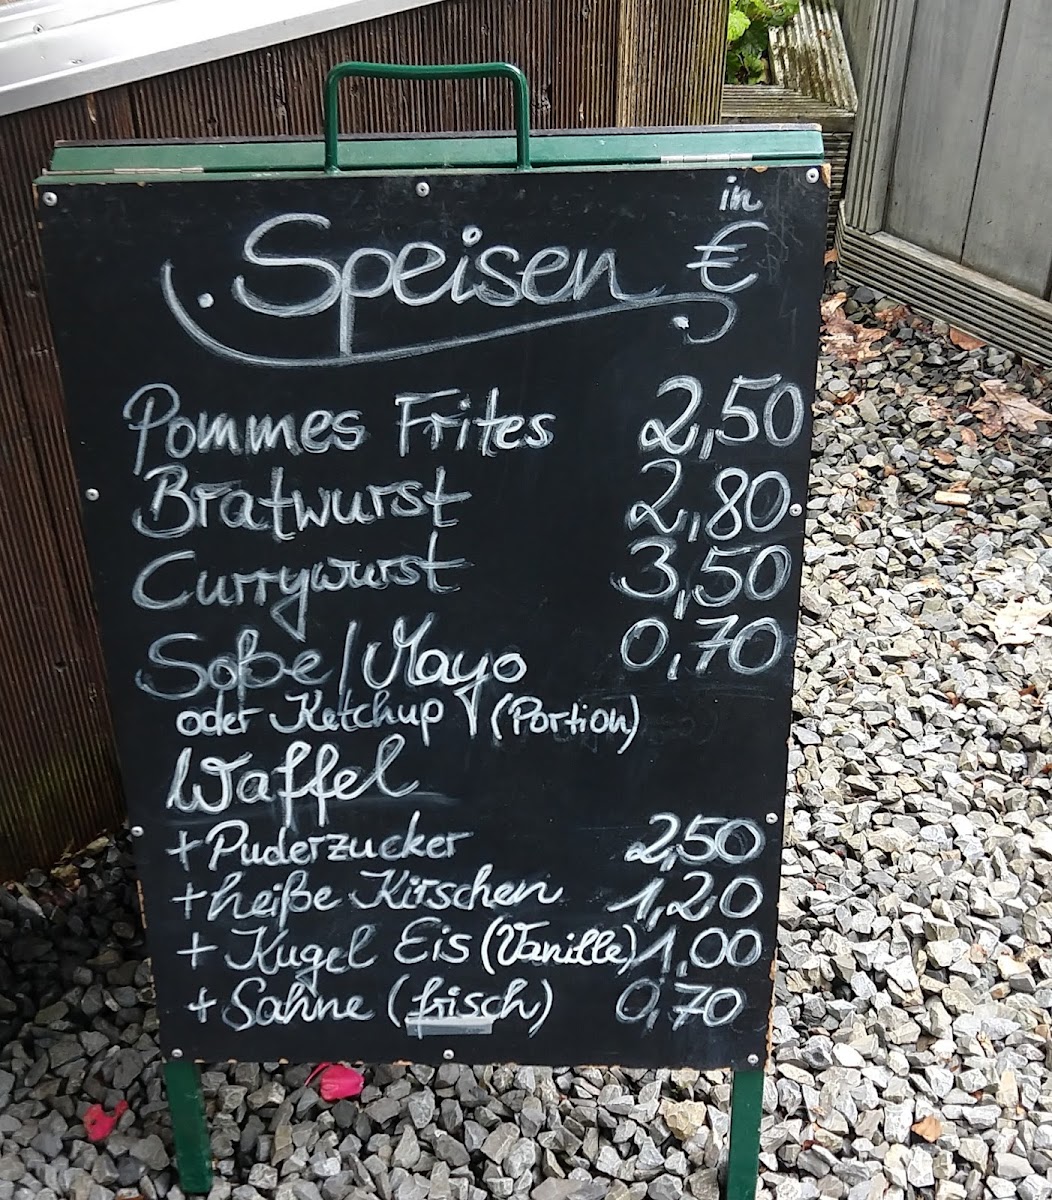 in
Speisen €
Pommes Frites 2,50
Bratwurst 2,80
Currywurst 3,50
Soße/Mayo 0,70
oder Ketchup (Portion)
Waffel
+ Puderzucker 2,50
+ heiße Kirschen 1,20
+ Kugel Eis (Vanille) 1,00
+ Sahne (frisch) 0,70